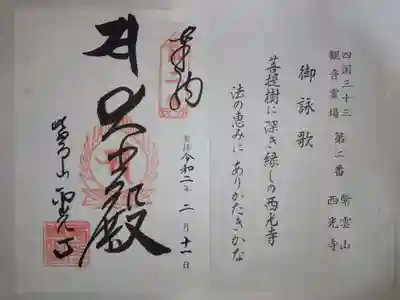 四国三十三
観音霊場 第二番 紫雲山
西光寺
御詠歌
菩提樹に深き緑しの西光寺
法の恵みにありがたきかな
奉納
令和二年 二月 十一日
大悲殿
紫雲山 西光寺